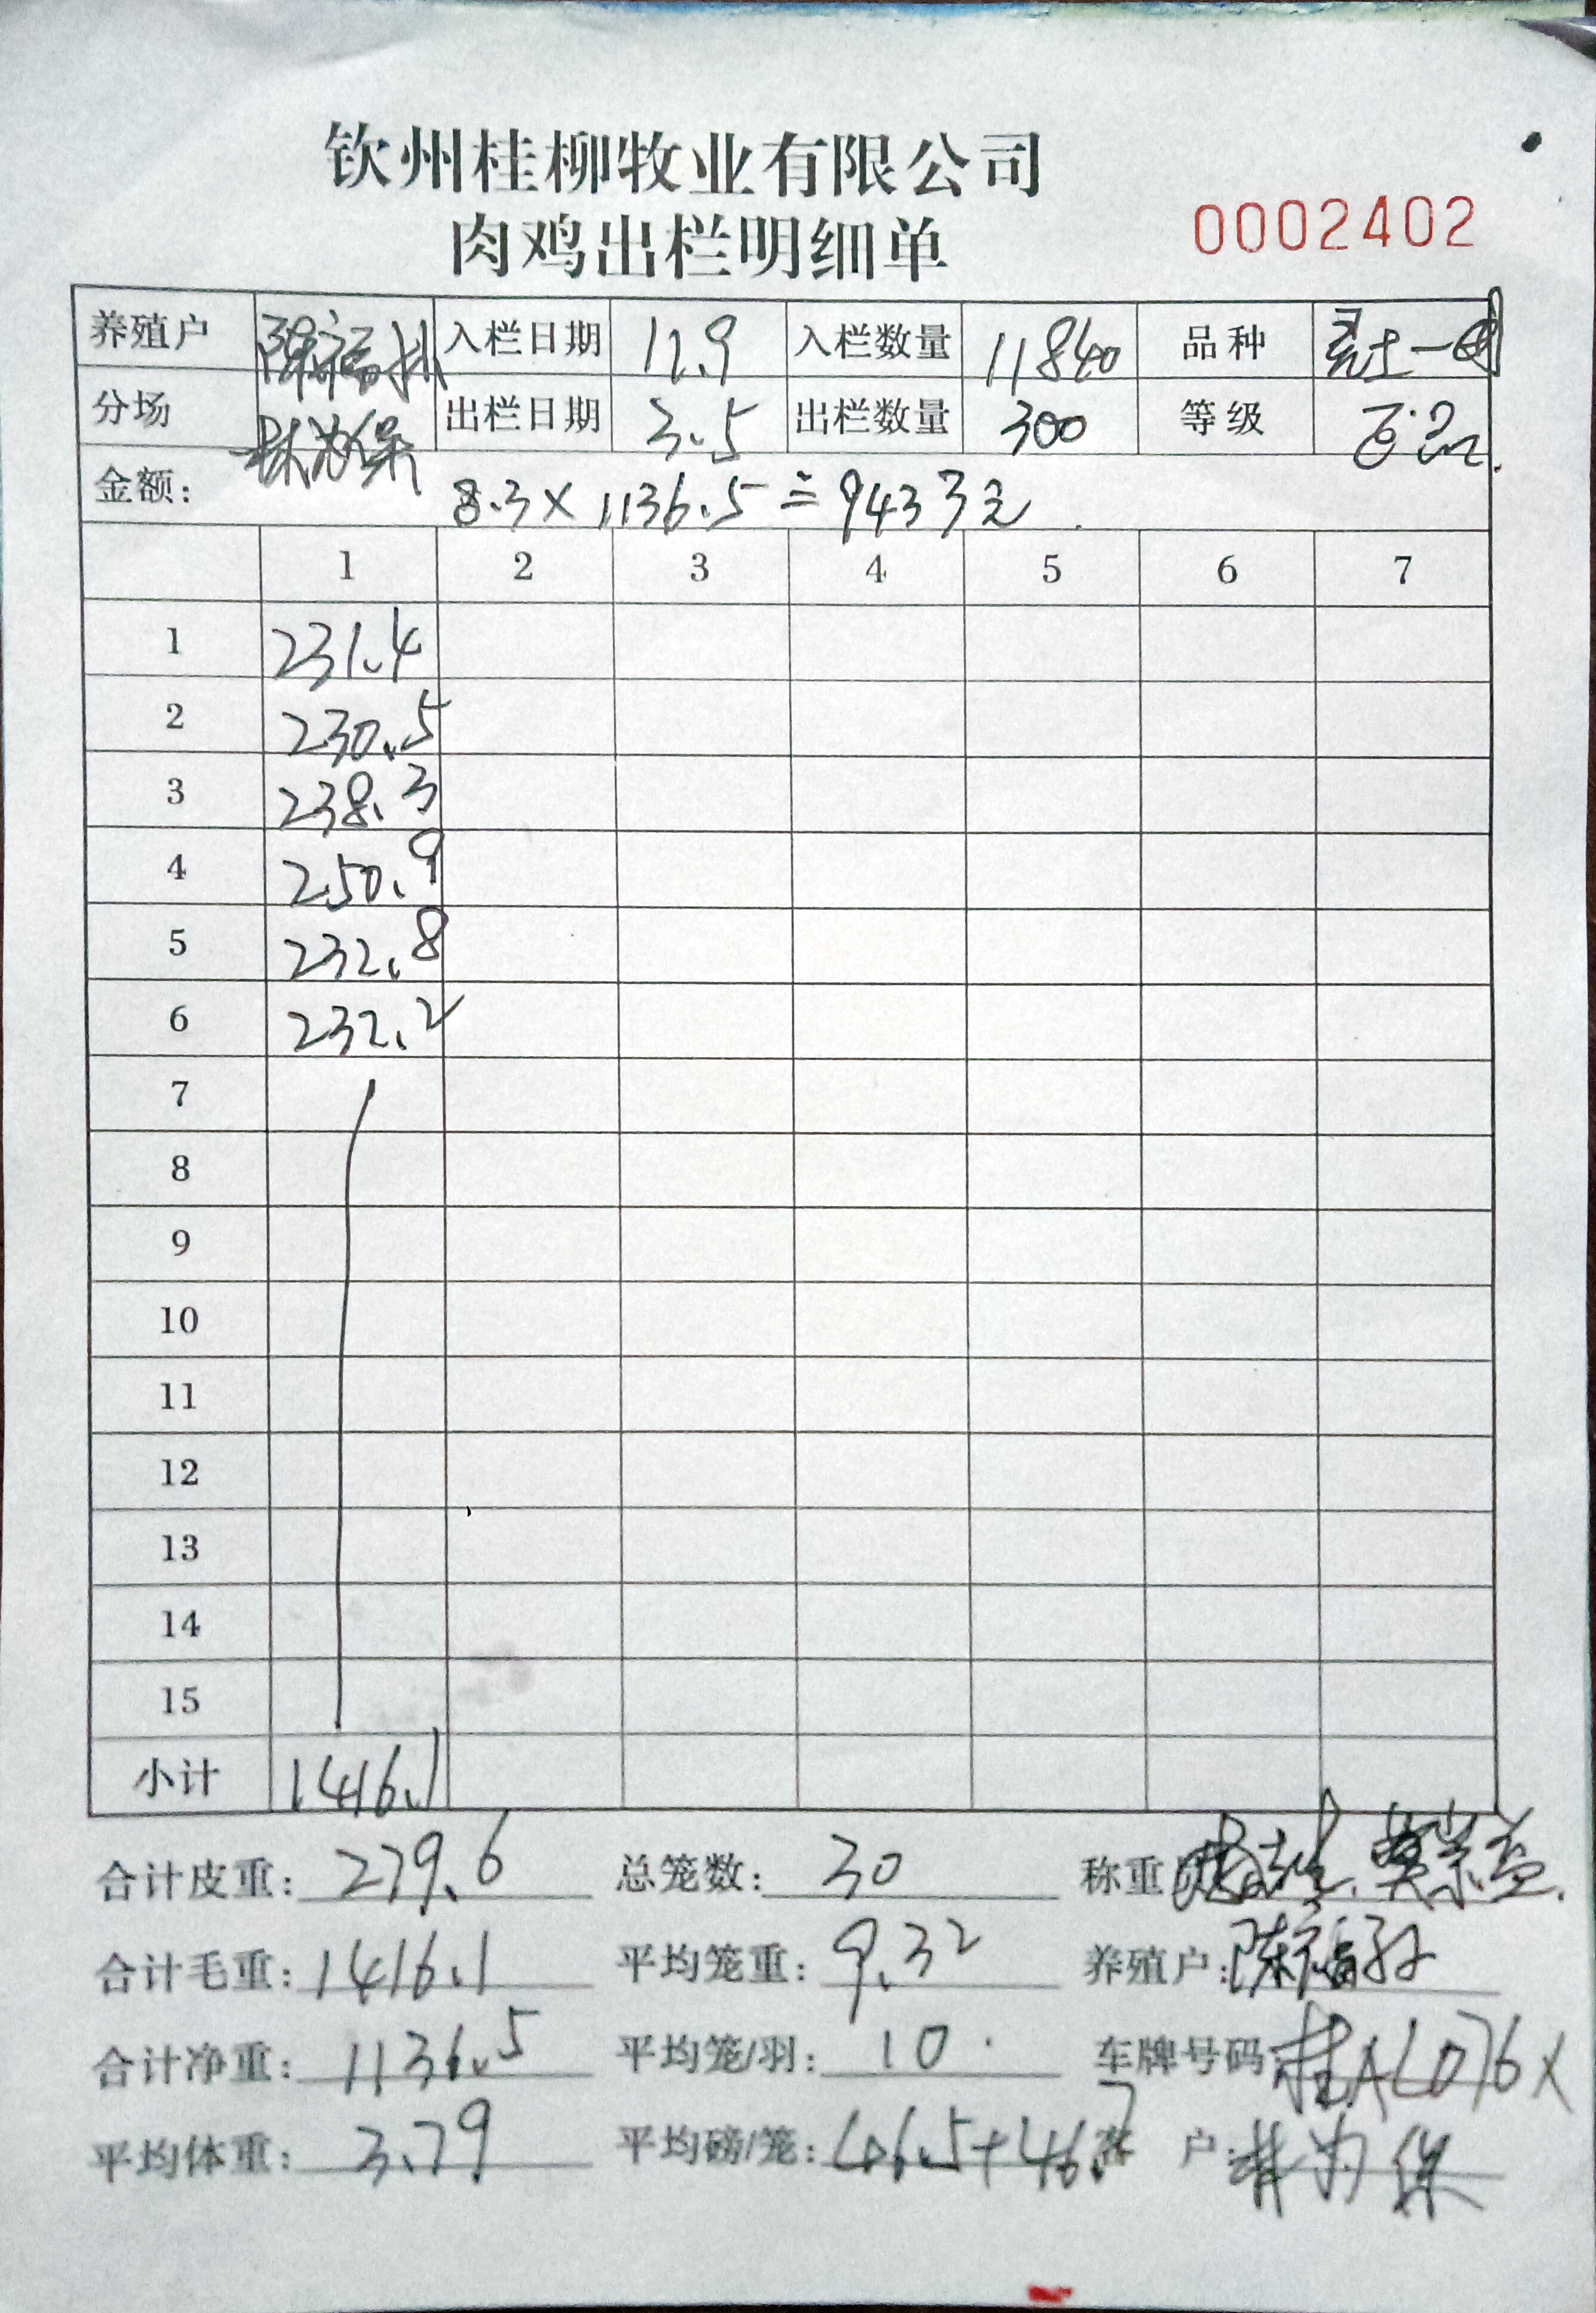 钦州桂柳牧业有限公司
肉鸡出栏明细单
0002402
养殖户 入栏日期 12.9 入栏数量 11840 品种 土一
分场 林为保 出栏日期 3.5 出栏数量 300 等级
金额: 8.3×1136.5≐9433元
1 2 3 4 5 6 7
1 231.4
2 230.5
3 238.3
4 250.9
5 232.8
6 232.2
7
8
9
10
11
12
13
14
15
小计 1416.1
合计皮重: 279.6 总笼数: 30 称重
合计毛重: 1416.1 平均笼重: 9.32 养殖户: 陈福
合计净重: 1136.5 平均笼/羽: 10 车牌号码 桂A
平均体重: 3.79 平均磅/笼: 46.5+46.7 户: 林为保